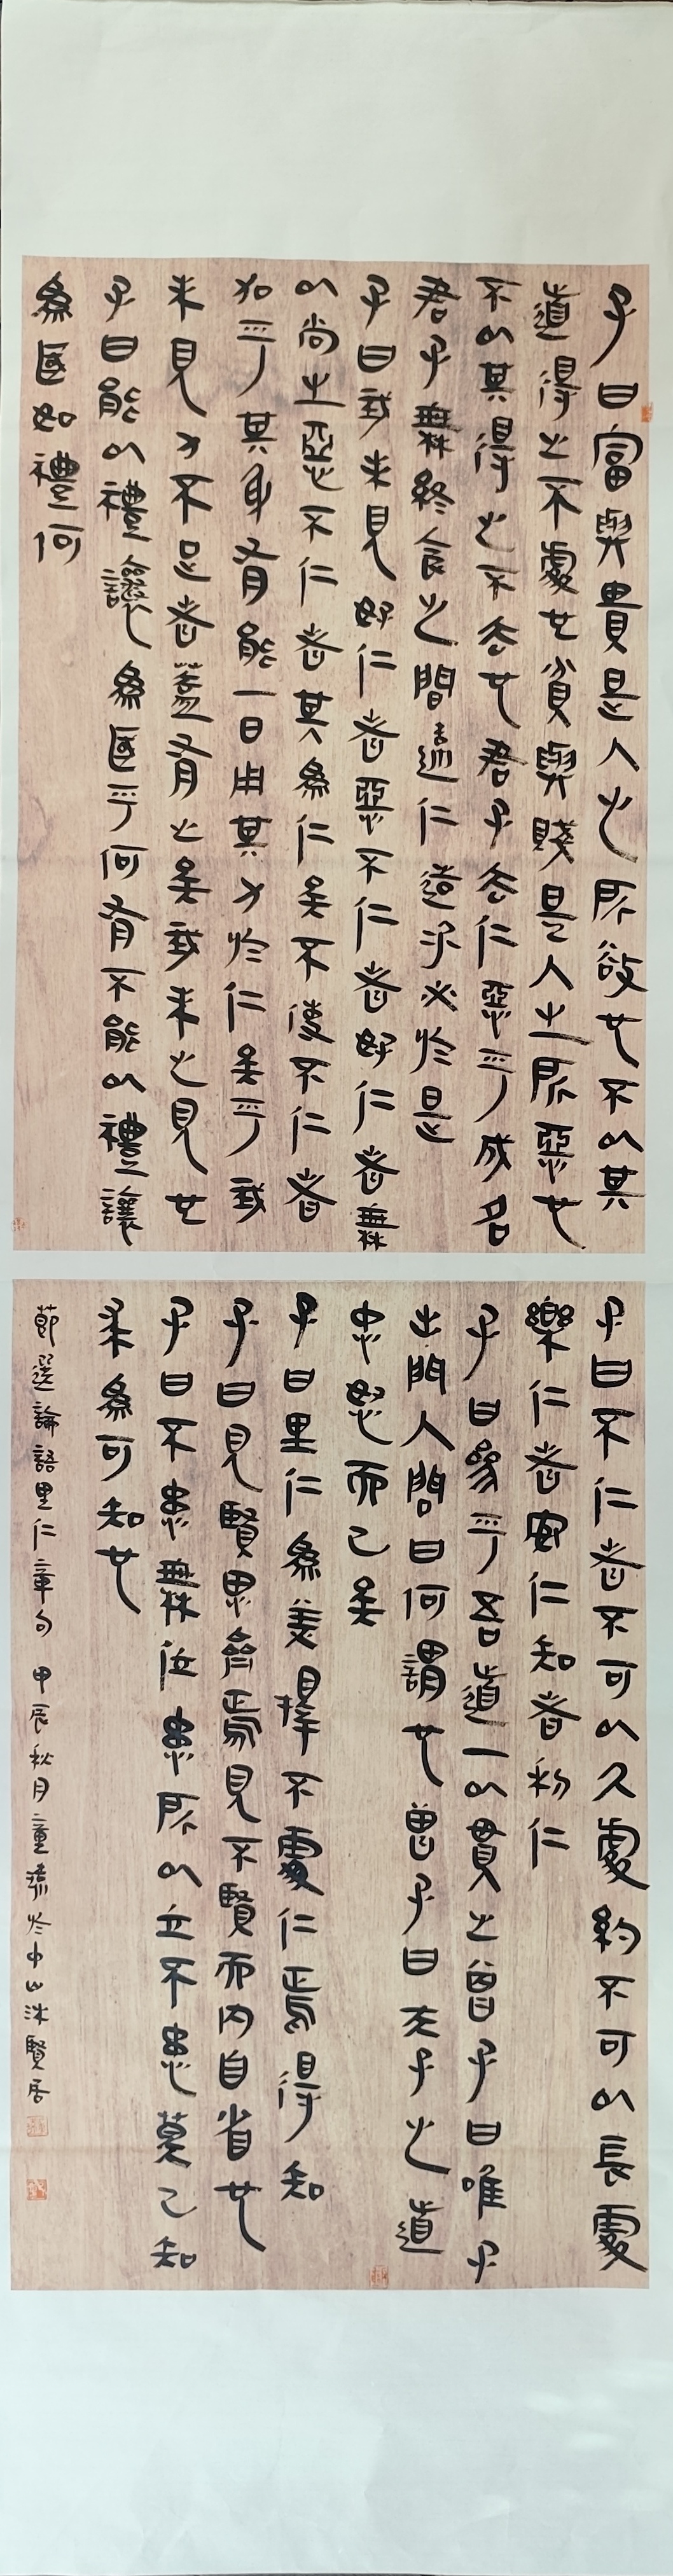 子曰富與貴是人之所欲也不以其
道得之不處也貧與賤是人之所惡也
不以其得之不去也君子去仁惡乎成名
君子無終食之間違仁造次必於是
子曰我未見好仁者惡不仁者好仁者無
以尚之惡不仁者其為仁矣不使不仁者
加乎其身有能一日用其力於仁矣乎我
未見力不足者蓋有之矣我未之見也
子曰能以禮讓為國乎何有不能以禮讓
為國如禮何
子曰不仁者不可以久處約不可以長處
樂仁者安仁知者利仁
子曰參乎吾道一以貫之曾子曰唯子
出門人問曰何謂也曾子曰夫子之道
忠恕而已矣
子曰里仁為美擇不處仁焉得知
子曰見賢思齊焉見不賢而內自省也
子曰不患無位患所以立不患莫己知
求為可知也
節選論語里仁章句 甲辰秋月童 於中山沐賢居